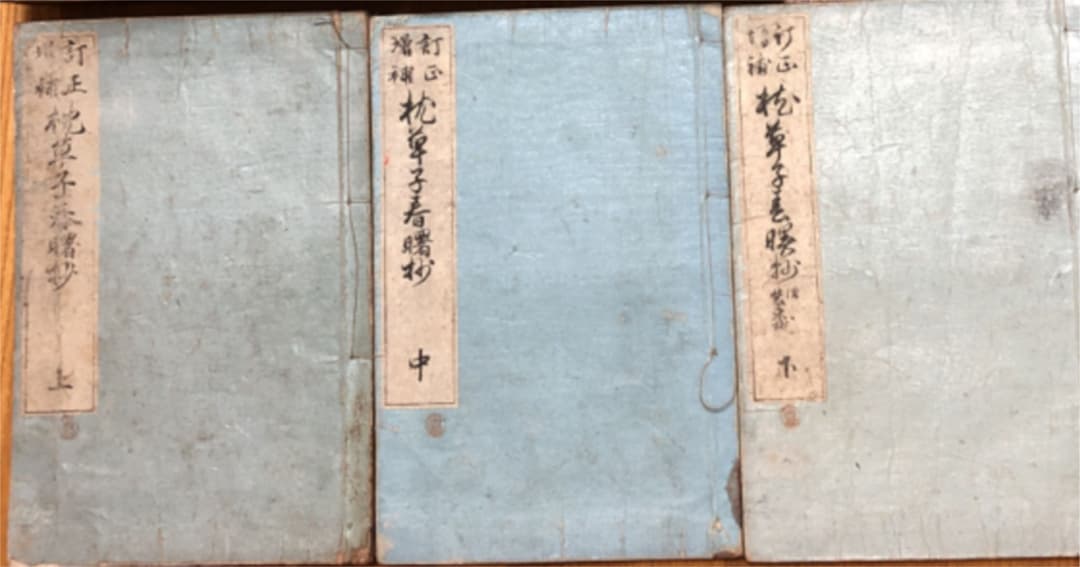 訂正
増補
枕草子春曙抄
上
訂正
増補
枕草子春曙抄
中
訂正
増補
枕草子春曙抄
下